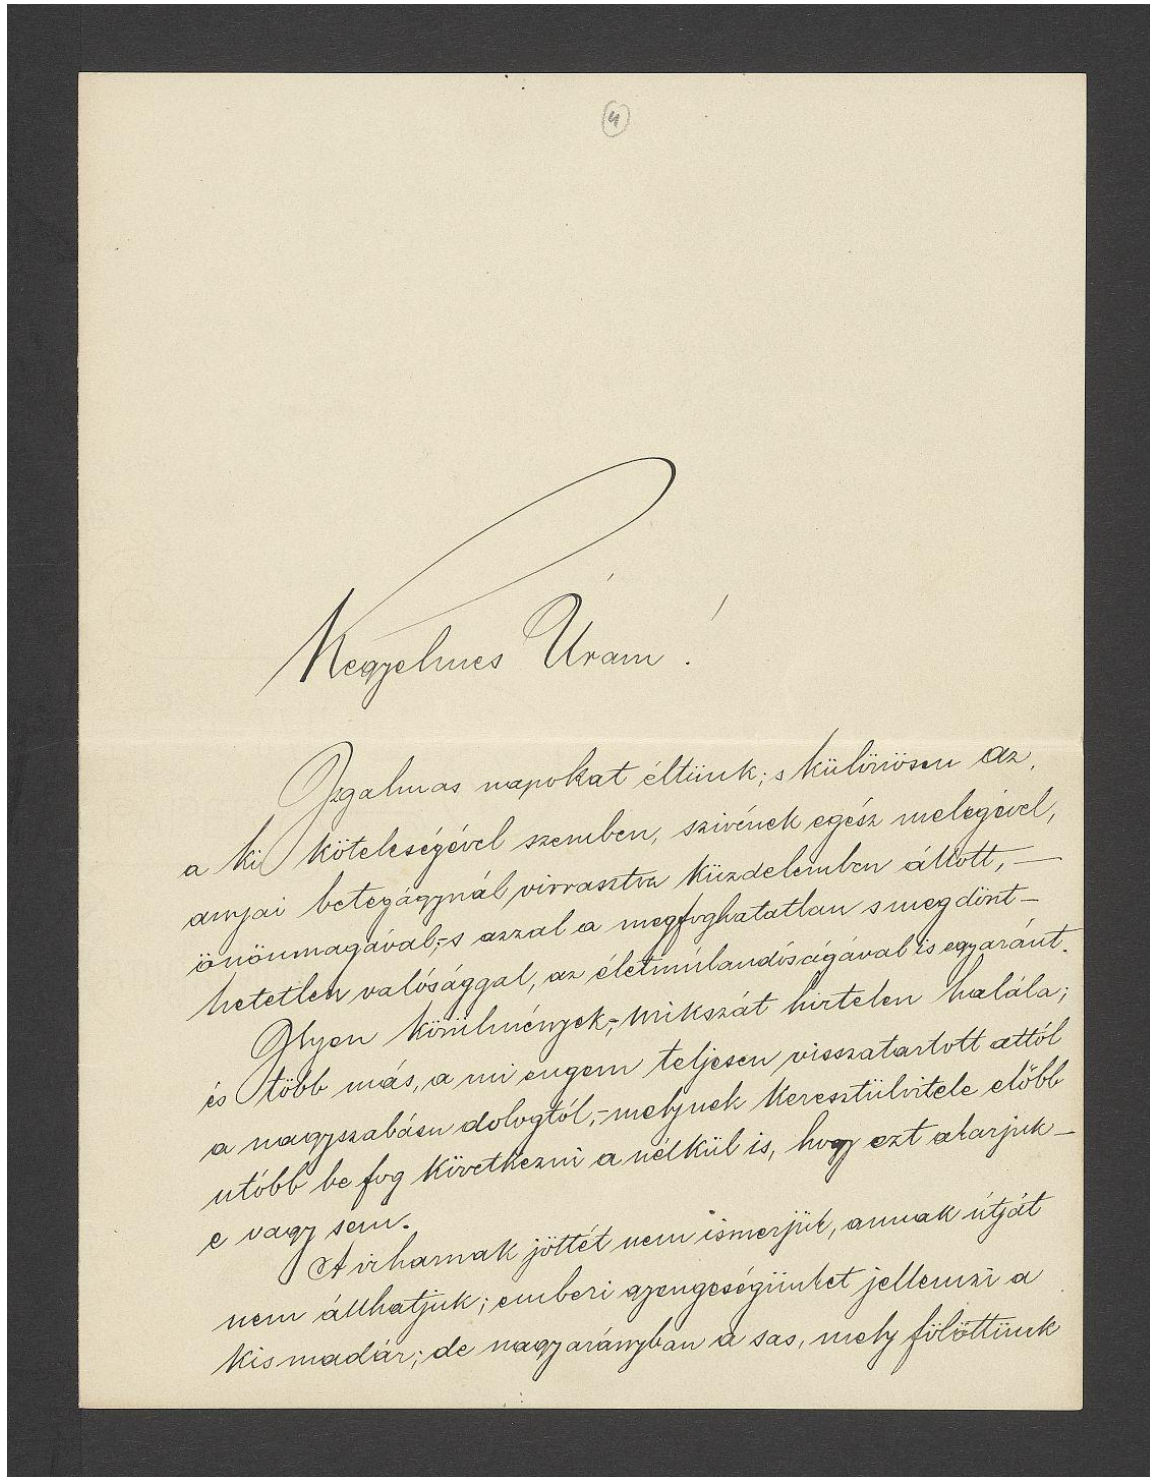 4
Kegyelmes Úram!
Izgalmas napokat éltünk; s különösen az,
a ki köteleségével szemben, szivének egész melegével,
anyai betegágynál virrasztva küzdelemben állott, —
önönmagával,- s azzal a megfoghatatlan s megdönt-
hetetlen valósággal, az életmúlandóságával is egyaránt.
Ilyen körülmények,- Mikszát hirtelen halála;
és több más, a mi engem teljesen visszatartott attól
a nagyszabásu dologtól,- melynek keresztülvitele előbb
utóbb be fog következni a nélkül is, hogy ezt akarjuk-
e vagy sem.
A viharnak jöttét nem ismerjük, annak útját
nem állhatjuk; emberi gyengeségünket jellemzi a
kis madár; de nagyarányban a sas, mely fölöttünk